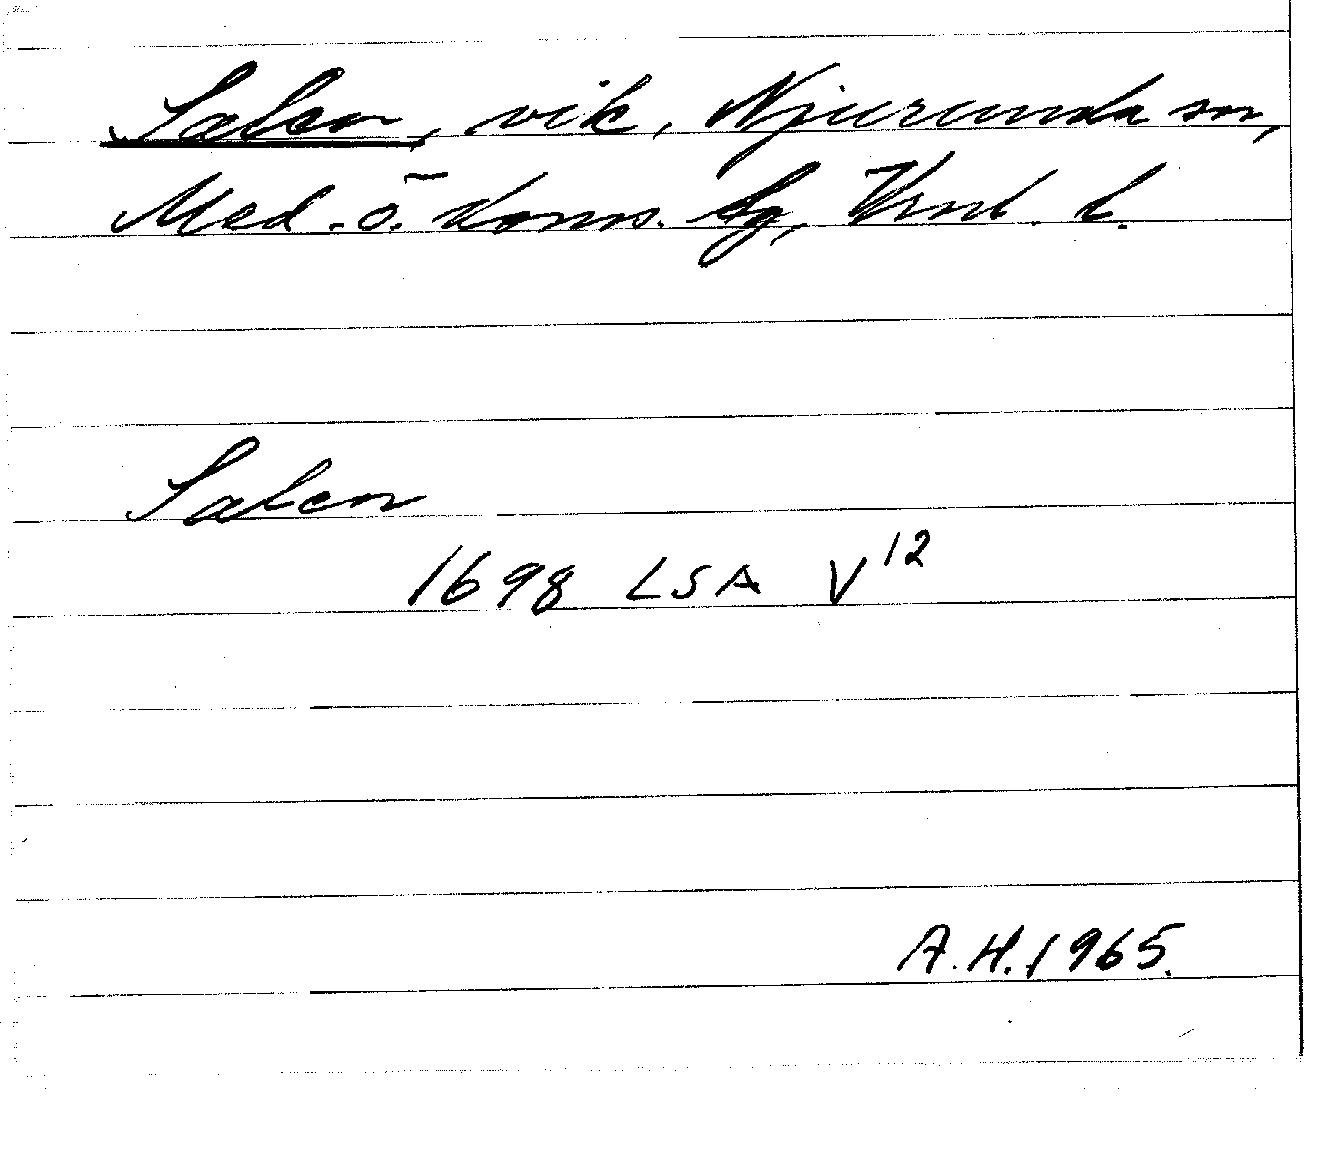 Salen, vik, Njurunda sn,
Med. o. doms. lg, Vrnl. l.
Salen
1698 LSA V12
A.H. 1965.